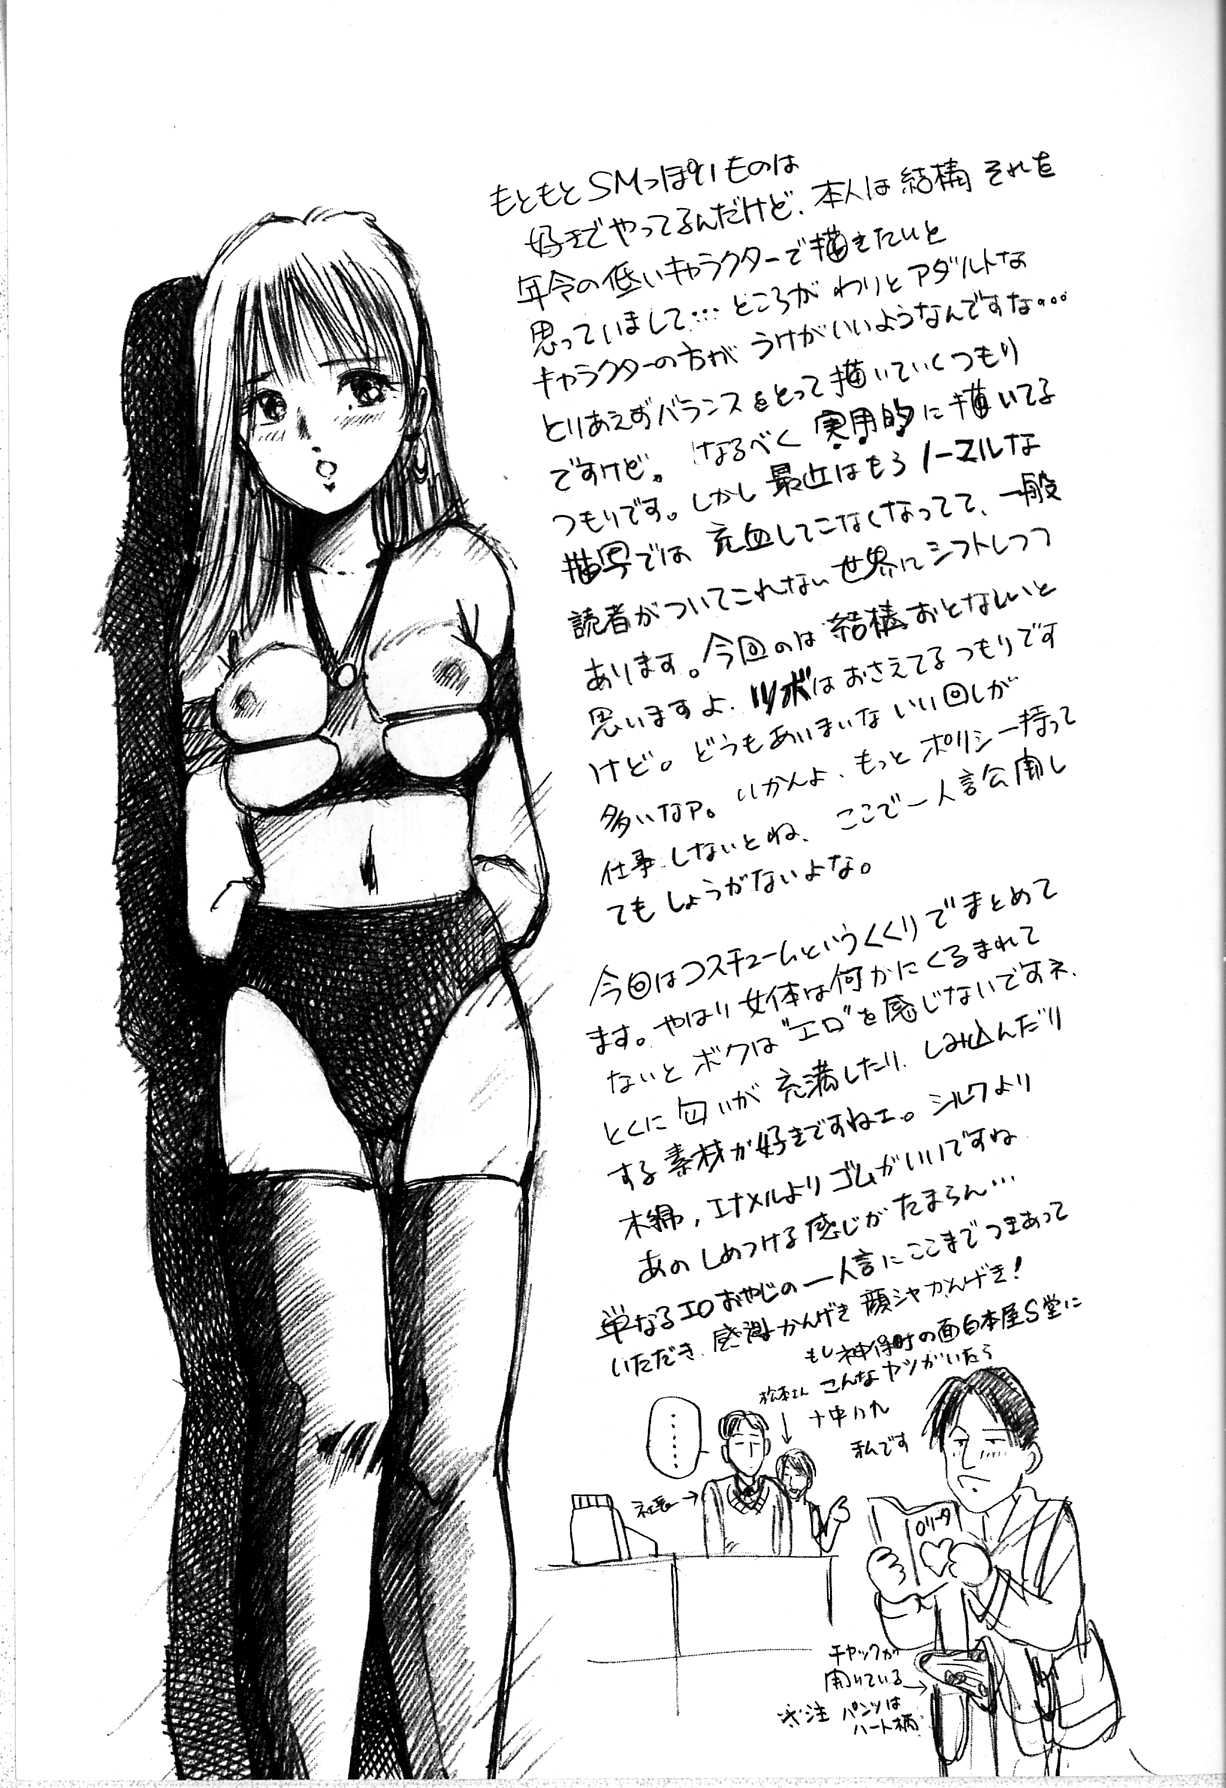 もともとSMっぽいものは
好きでやってるんだけど、本人は結構それを
年令の低いキャラクターで描きたいと
思っていまして…ところがわりとアダルトな
キャラクターの方がうけがいいようなんですな…
とりあえずバランスをとって描いていくつもり
ですけど。なるべく実用的に描いてる
つもりです。しかし最近はもうノーマルな
描写では充血してこなくなってて、一般
読者がついてこれない世界にシフトしつつ
あります。今回のは結構おとなしいと
思いますよ、ツボはおさえてるつもりです
けど。どうもあいまいないい回しが
多いなア。いかんよ、もっとポリシー持って
仕事しないとね、ここで一人言公開し
てもしょうがないよな。
今回はコスチュームというくくりでまとめて
ます。やはり女体は何かにくるまれて
ないとボクは"エロ"を感じないですネ、
とくに匂いが充満したり、しみ込んだり
する素材が好きですねェ。シルクより
木綿、エナメルよりゴムがいいですね
あのしめつける感じがたまらん…
単なるエロおやじの一人言にここまでつきあって
いただき、感謝かんげき顔シャかんげき!
もし神保町の面白本屋S堂に
こんなヤツがいたら
十中八九
私です
松本さん
……
社長→
ロリータ
チャックが
開いている
※注 パンツは
ハート柄